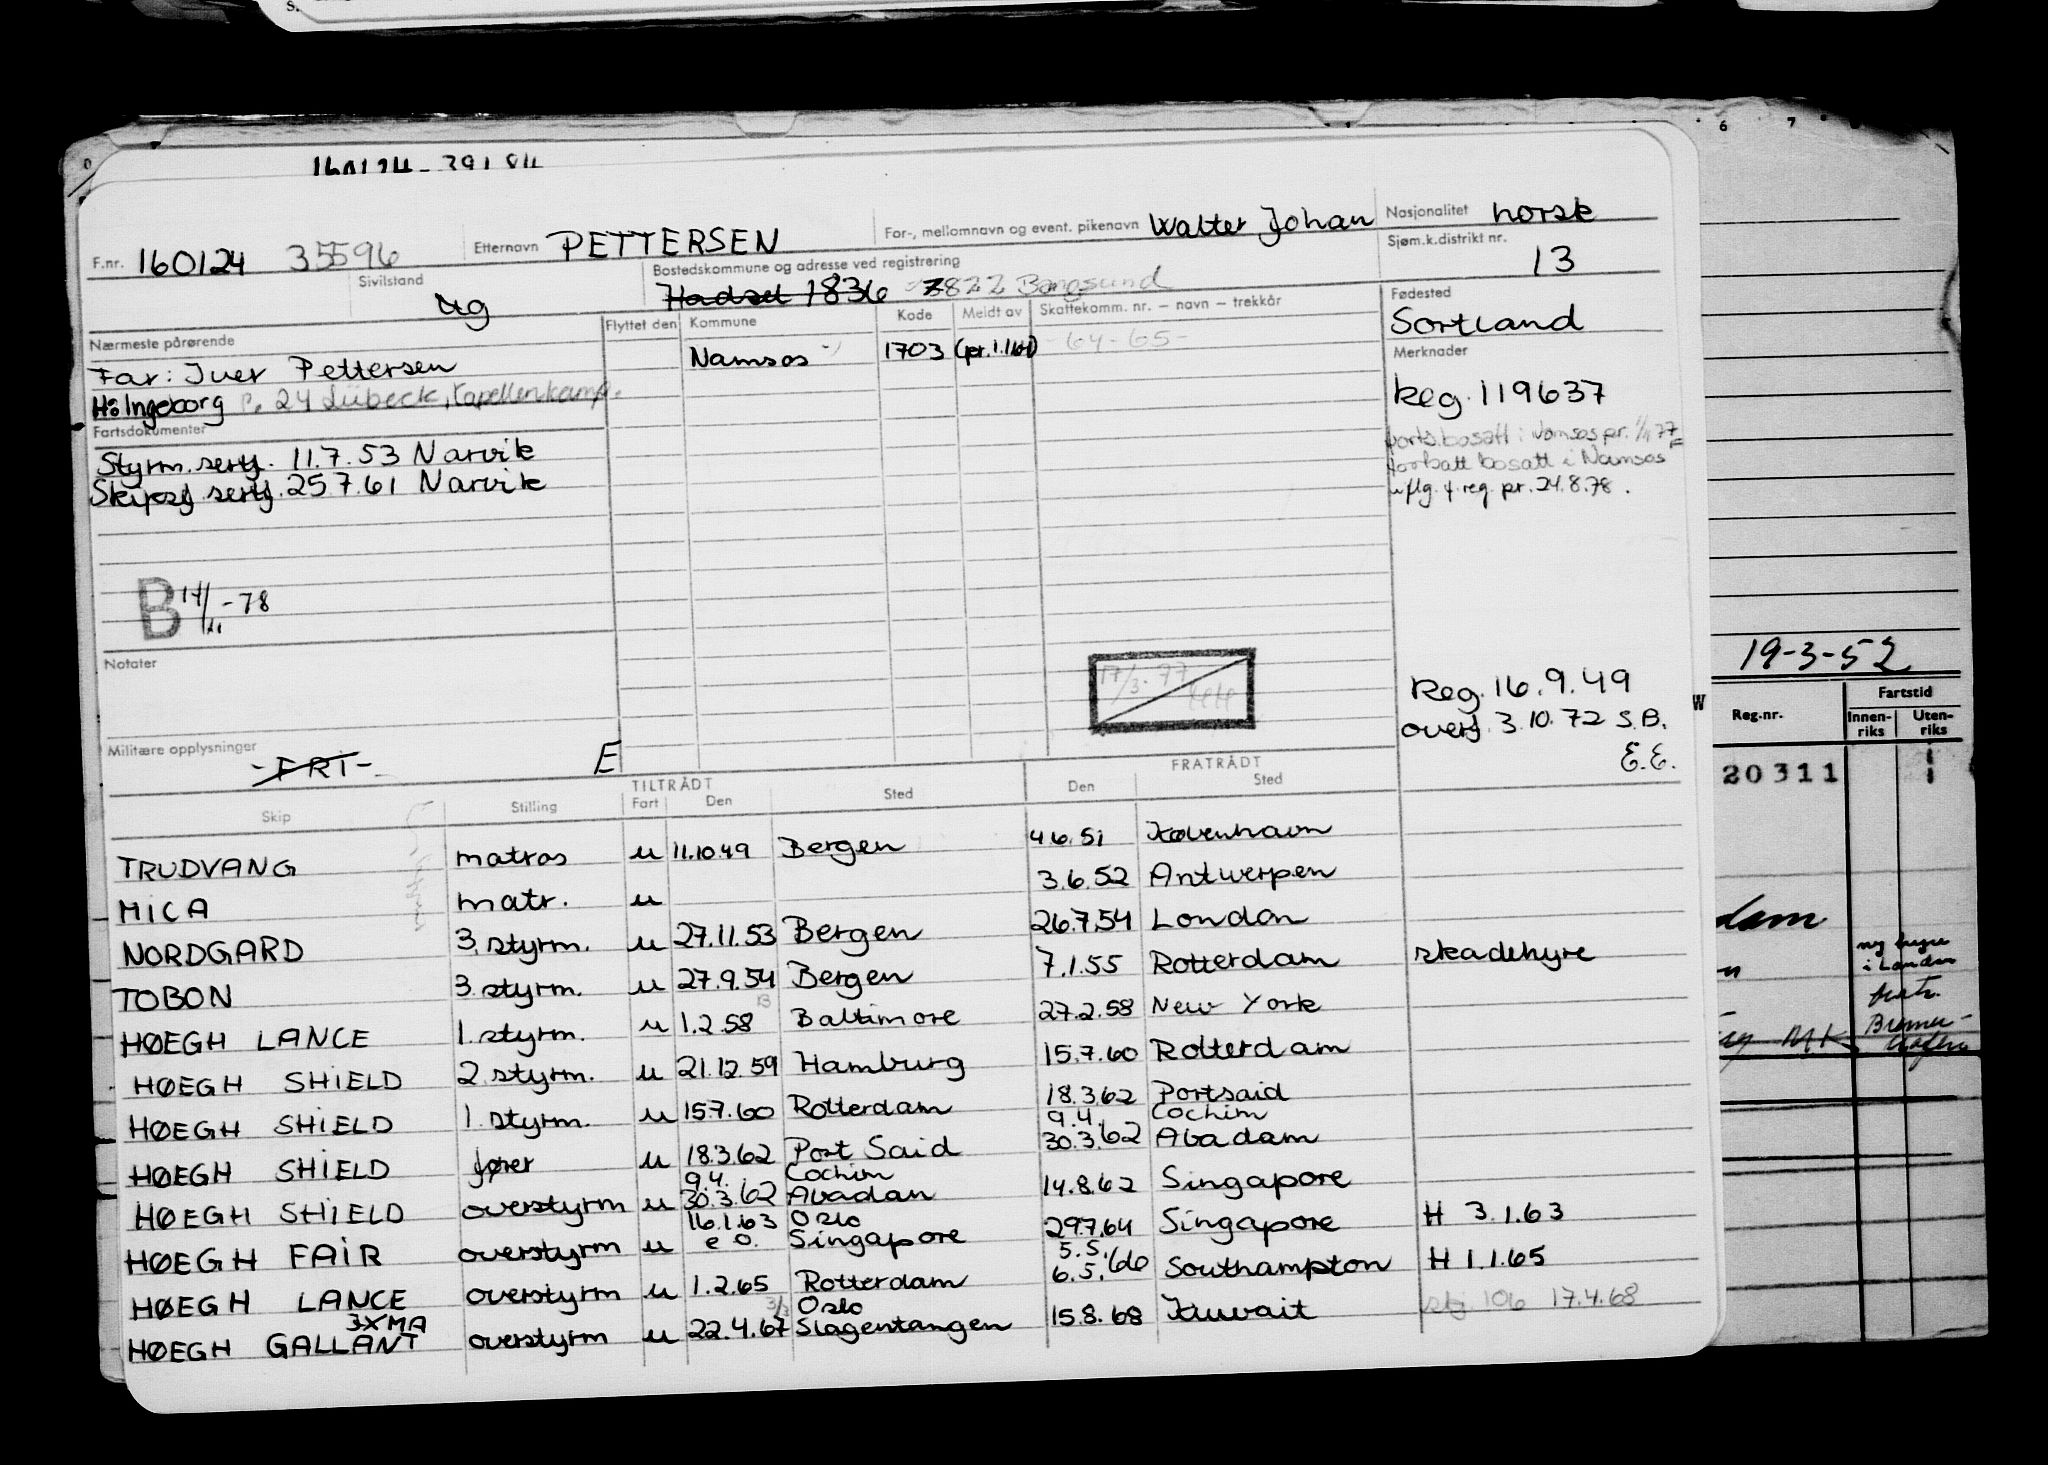 F.nr. 160124 35596 Etternavn PETTERSEN For-, mellomnavn og event. pikenavn Walter Johan Nasjonalitet norsk
Sivilstand ug Bostedskommune og adresse ved registrering Hadsel 1836 7822 Bangsund Sjøm.k.distrikt nr. 13
Nærmeste pårørende Flyttet den Kommune Kode Meldt av Skattekomm. nr. – navn – trekkår Fødested
Sortland
Far: Iver Pettersen Namsos 1703 -64-65- Merknader
H: Ingeborg 24 Lübeck, Kapellenkamp. Reg. 119637
Fartsdokumenter
Styrm. sertf. 11.7.53 Narvik bosatt i Namsos pr.
Skipsf sertf. 257.61 Narvik fortsatt bosatt i Namsos
reg. pr. 24.8.78.
B 17/ -78
Notater
17/3-77
Reg. 16.9.49
overf. 3.10.72 S.B.
E.E.
Militære opplysninger -FRI- E
TILTRÅDT FRATRÅDT
Skip Stilling Fart Den Sted Den Sted
TRUDVANG matros u 11.1049 Bergen 46.51 København
MICA matr. u 3.6.52 Antwerpen
NORDGARD 3. styrm. u 27.11.53 Bergen 26.7.54 London
TOBON 3. styrm. u 27.9.54 Bergen 7.1.55 Rotterdam skadehyre
HØEGH LANCE 1. styrm. u 1.2.58 Baltimore 27.2.58 New York
HØEGH SHIELD 2. styrm. u 21.12.59 Hamburg 15.7.60 Rotterdam
HØEGH SHIELD 1. styrm. u 157.60 Rotterdam 18.3.62 Portsaid
HØEGH SHIELD fører u 18.3.62 Port Said 9.4. Cochim 30.3.62 Abadam
HØEGH SHIELD overstyrm u 9.4. Cochim 30.3.62 Abadan 14.8.62 Singapore
HØEGH FAIR overstyrm u 16.1.63 Oslo e.o. Singapore 297.64 Singapore H 3.1.63
HØEGH LANCE overstyrm u 1.2.65 Rotterdam 5.5. 6.5.66 Southampton H 1.1.65
3XMA
HØEGH GALLANT overstyrm u 3/3 Oslo 22.4.67 Slagentangen 15.8.68 Kuwait 106 17.4.68
6 7
19-3-52
Fartstid
Reg.nr. Innen-riks Uten-riks
20311
dam
ny hyre
i London
W